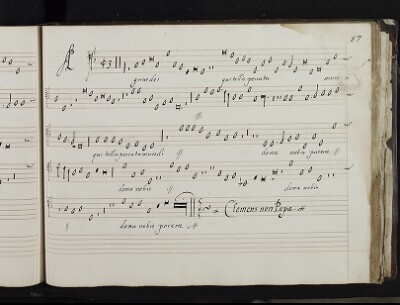 57
A
gnus dei qui tollis peccata mun
//
qui tollis peccata mundi // dona nobis pacem //
dona nobis // dona nobis
// dona nobis pacem Clemens non Papa